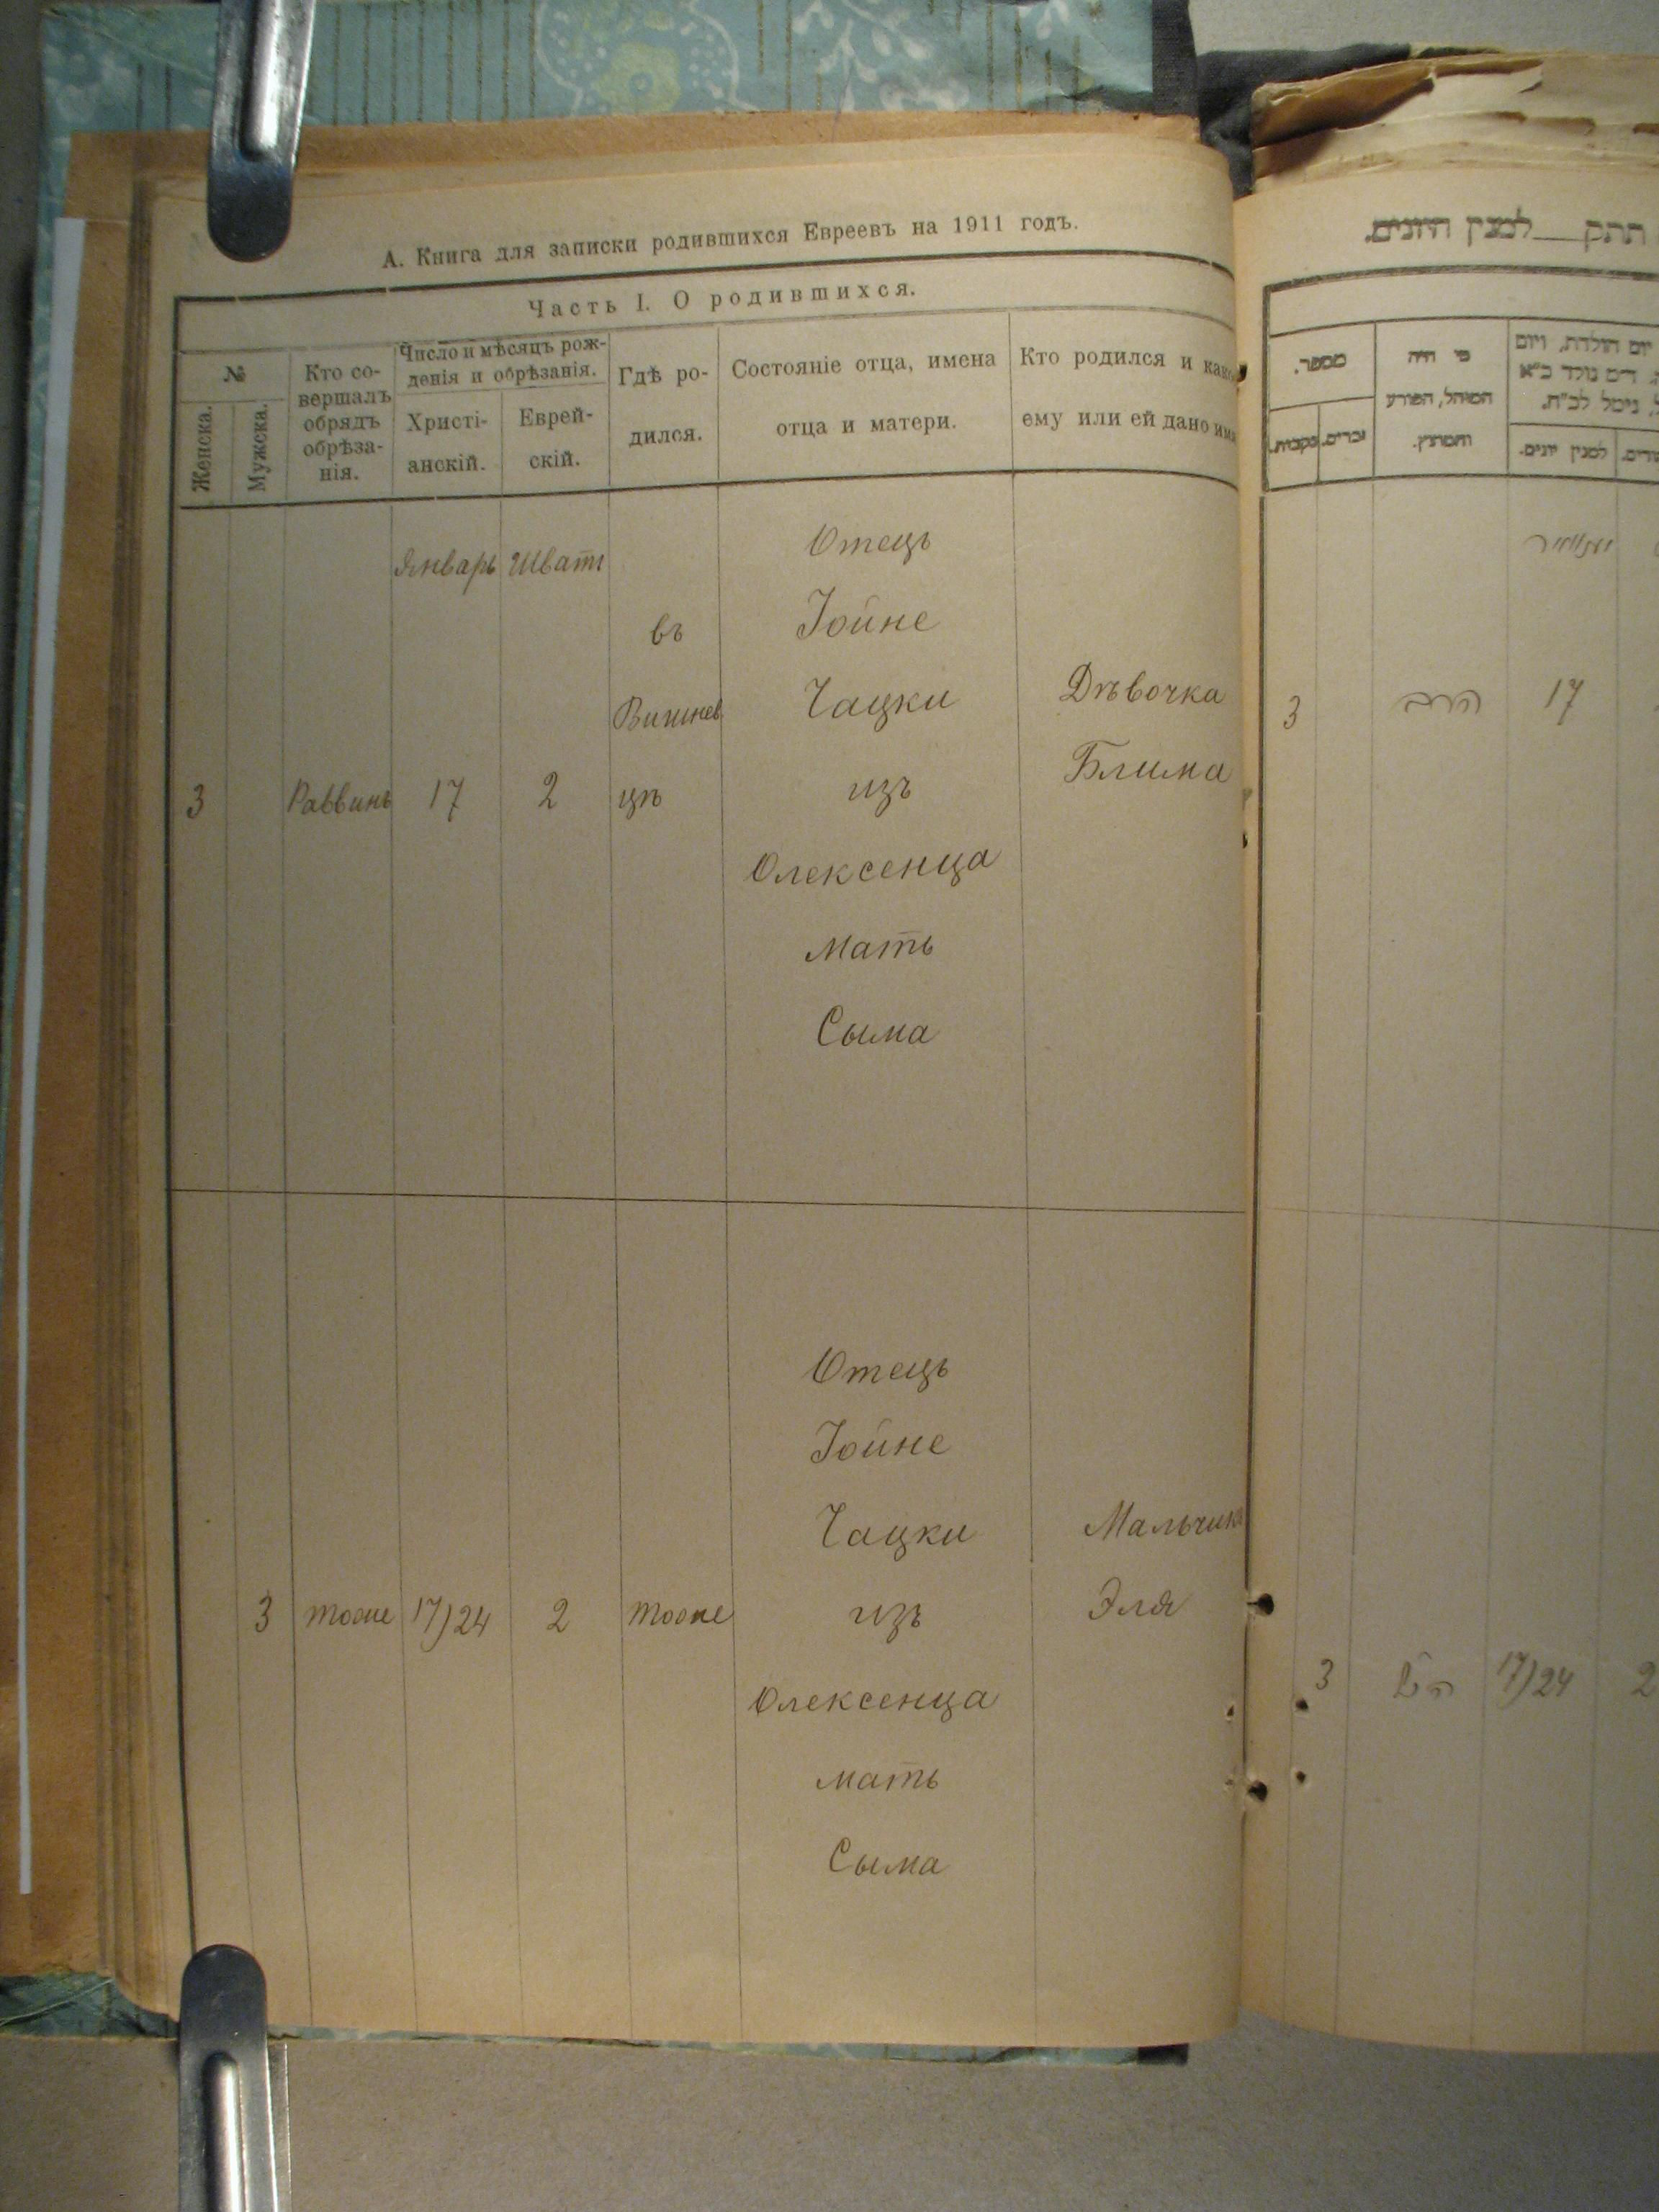 А. Книга для записки родившихся Евреевъ на 1911 годъ.
Часть I. О родившихся.
№
Женска.
Мужска.
Кто со-
вершалъ
обрядъ
обрѣза-
нія.
Число и мѣсяцъ рож-
денія и обрѣзанія.
Христі-
анскій.
Еврей-
скій.
Гдѣ ро-
дился.
Состояніе отца, имена
отца и матери.
Кто родился и какое
ему или ей дано имя
Январь Шватъ
Отецъ
въ
Іойне
Вишнев
Чацки
Дѣвочка
Блима
3 Раввинъ 17 2 цѣ изъ
Олексенца
Мать
Сыма
Отецъ
Іойне
Чацки
Мальчикъ
3 тоже 17/24 2 тоже изъ Эля
Олексенца
мать
Сыма
תתק__למנין היונים.
מספר.
נקבות.
זכרים.
מי היה
המוהל, הפורע
והמוצץ.
יום הולדת, ויום
למנין יונים.
יאנוואר
3 הרב 17
3 הנ״ל 17/24 2